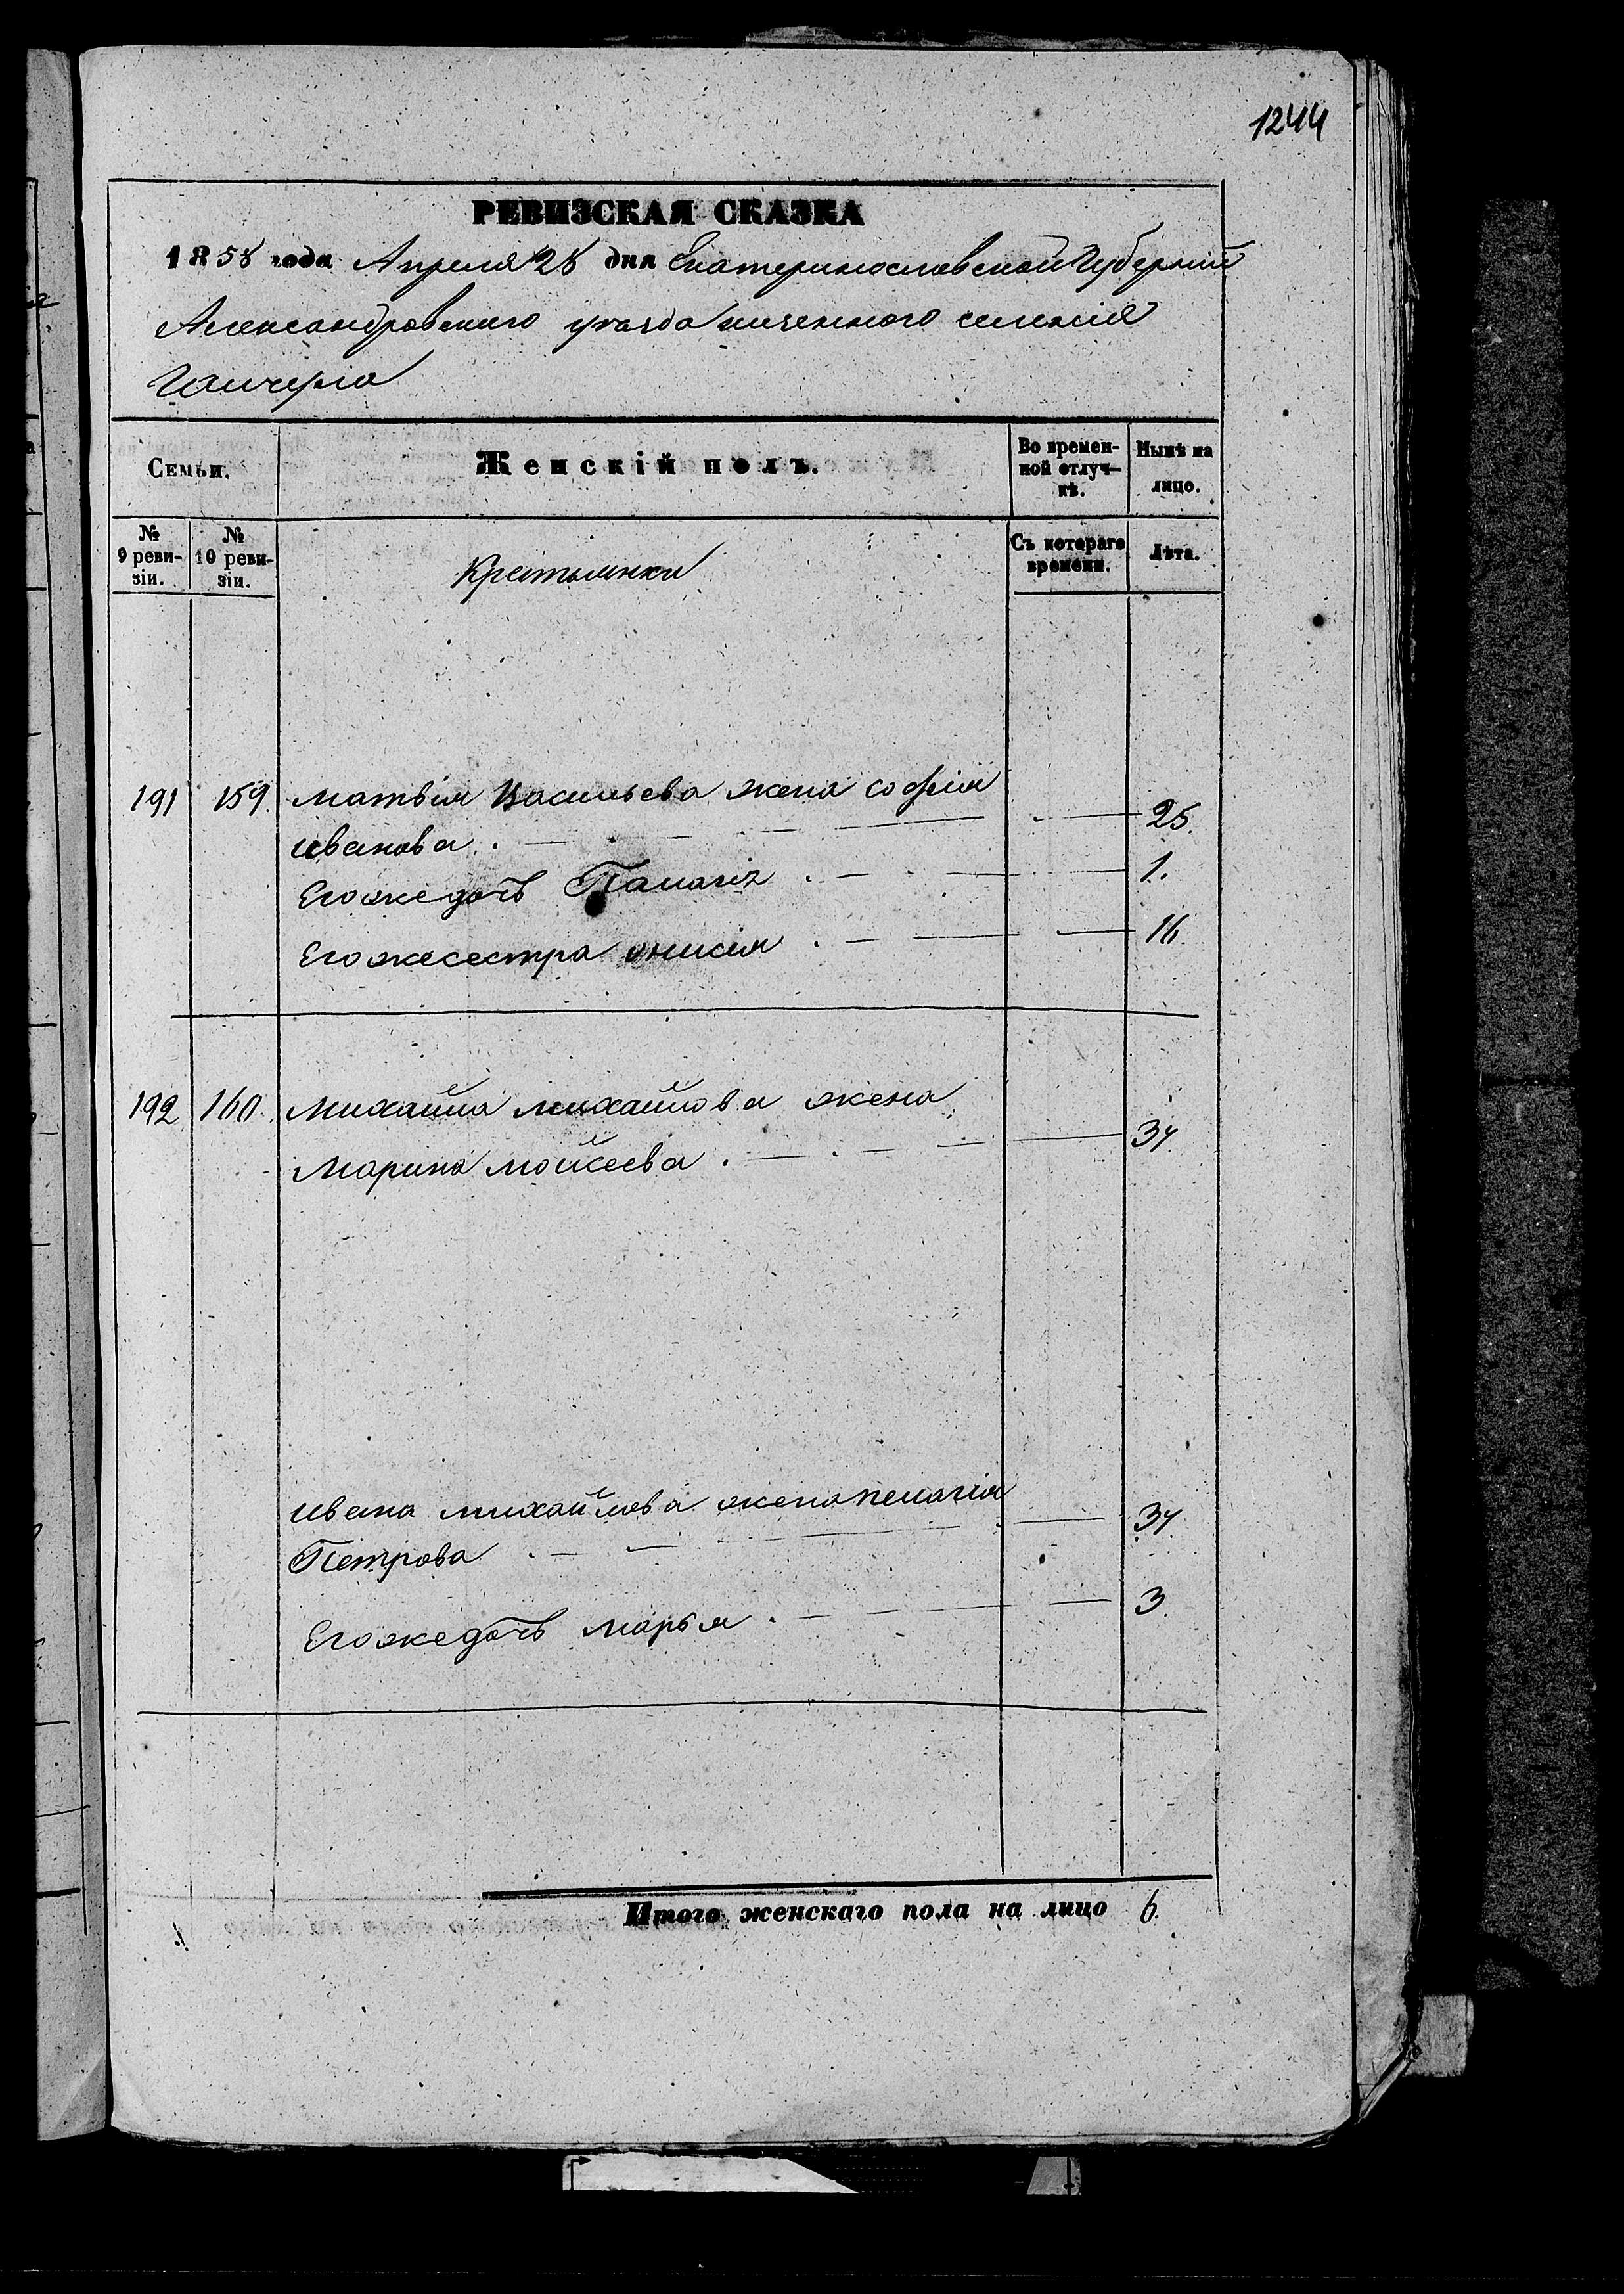 1244
РЕВИЗСКАЯ СКАЗКА
1858 года Апреля 28 дня Екатеринославской Губернии
Александровского уезда казенного селения
Гайчула
Семьи.
Женскій полъ.
Во времен-
ной отлуч-
кѣ.
Нынѣ на
лицо.
№
9 реви-
зіи.
№
10 реви-
зіи.
Крестьянки
Съ котораго
времени.
Лѣта.
191 159. Матвія Васильева жена софія
иванова . 25.
Его же дочь Палагія . 1.
Его же сестра онисія . 16.
192 160. Михайла михайлова жена
Марина мойсеева . 34.
ивана михайлова жена пелагія
Петрова . 34.
Его же дочь марья . 3.
Итого женскаго пола на лицо 6.